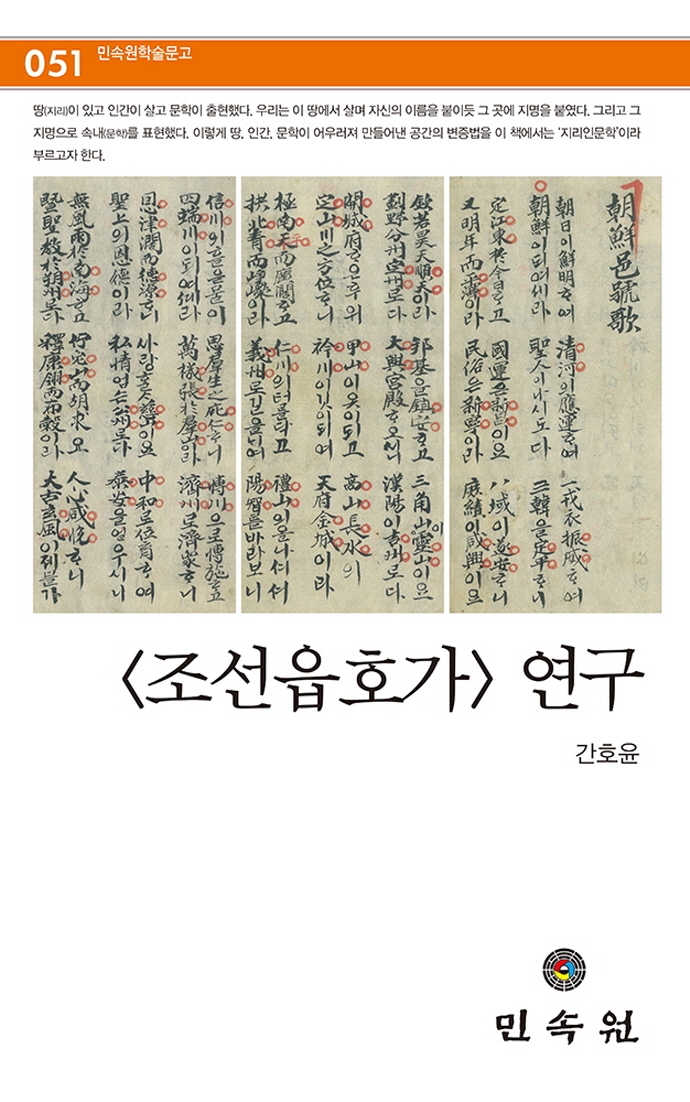 051 민속원학술문고
땅(지리)이 있고 인간이 살고 문학이 출현했다. 우리는 이 땅에서 살며 자신의 이름을 붙이듯 그 곳에 지명을 붙였다. 그리고 그
지명으로 속내(문학)를 표현했다. 이렇게 땅, 인간, 문학이 어우러져 만들어낸 공간의 변증법을 이 책에서는 '지리인문학'이라
부르고자 한다.
朝鮮邑號歌
朝日이鮮明ᄒᆞ여
朝鮮이되여셰라
淸河의應運ᄒᆞ여
聖人이나시도다
一戎衣振威ᄒᆞ여
三韓을定平ᄒᆞ니
定江東於今日ᄒᆞ고
又明年而
國運은新昌이요
民俗은新興이라
八域이遂安ᄒᆞ니
庶績이咸興이으
欽若昊天順天이라
劃野分州定州로다
邦基을鎭安ᄒᆞ고
大興宮殿ᄒᆞ오시니
三角山靈山이으
漢陽이吉州로다
開城府
定山川之方位ᄒᆞ니
甲山이옷이되고
衿川이깃이되여
高山長水의
天府金城이라
極南天而廣闊ᄒᆞ고
拱北靑而
仁川의터를닥고
義州로길을
禮山의올나셔셔
陽智를바라보니
信川의흘은물이
四端川이되여셰라
思羣生之死仁ᄒᆞ니
萬樣張於羣山이라
博川으로博施ᄒᆞ고
濟州로濟衆ᄒᆞ니
恩津潤而德源ᄒᆞ니
聖上의恩德이라
中和로位育ᄒᆞ여
泰安을일우시니
無風雨於南海ᄒᆞ고
曁聖敎於朔州로다
人心咸悅ᄒᆞ니
大古玄風이
〈조선읍호가〉 연구
간호윤
민속원